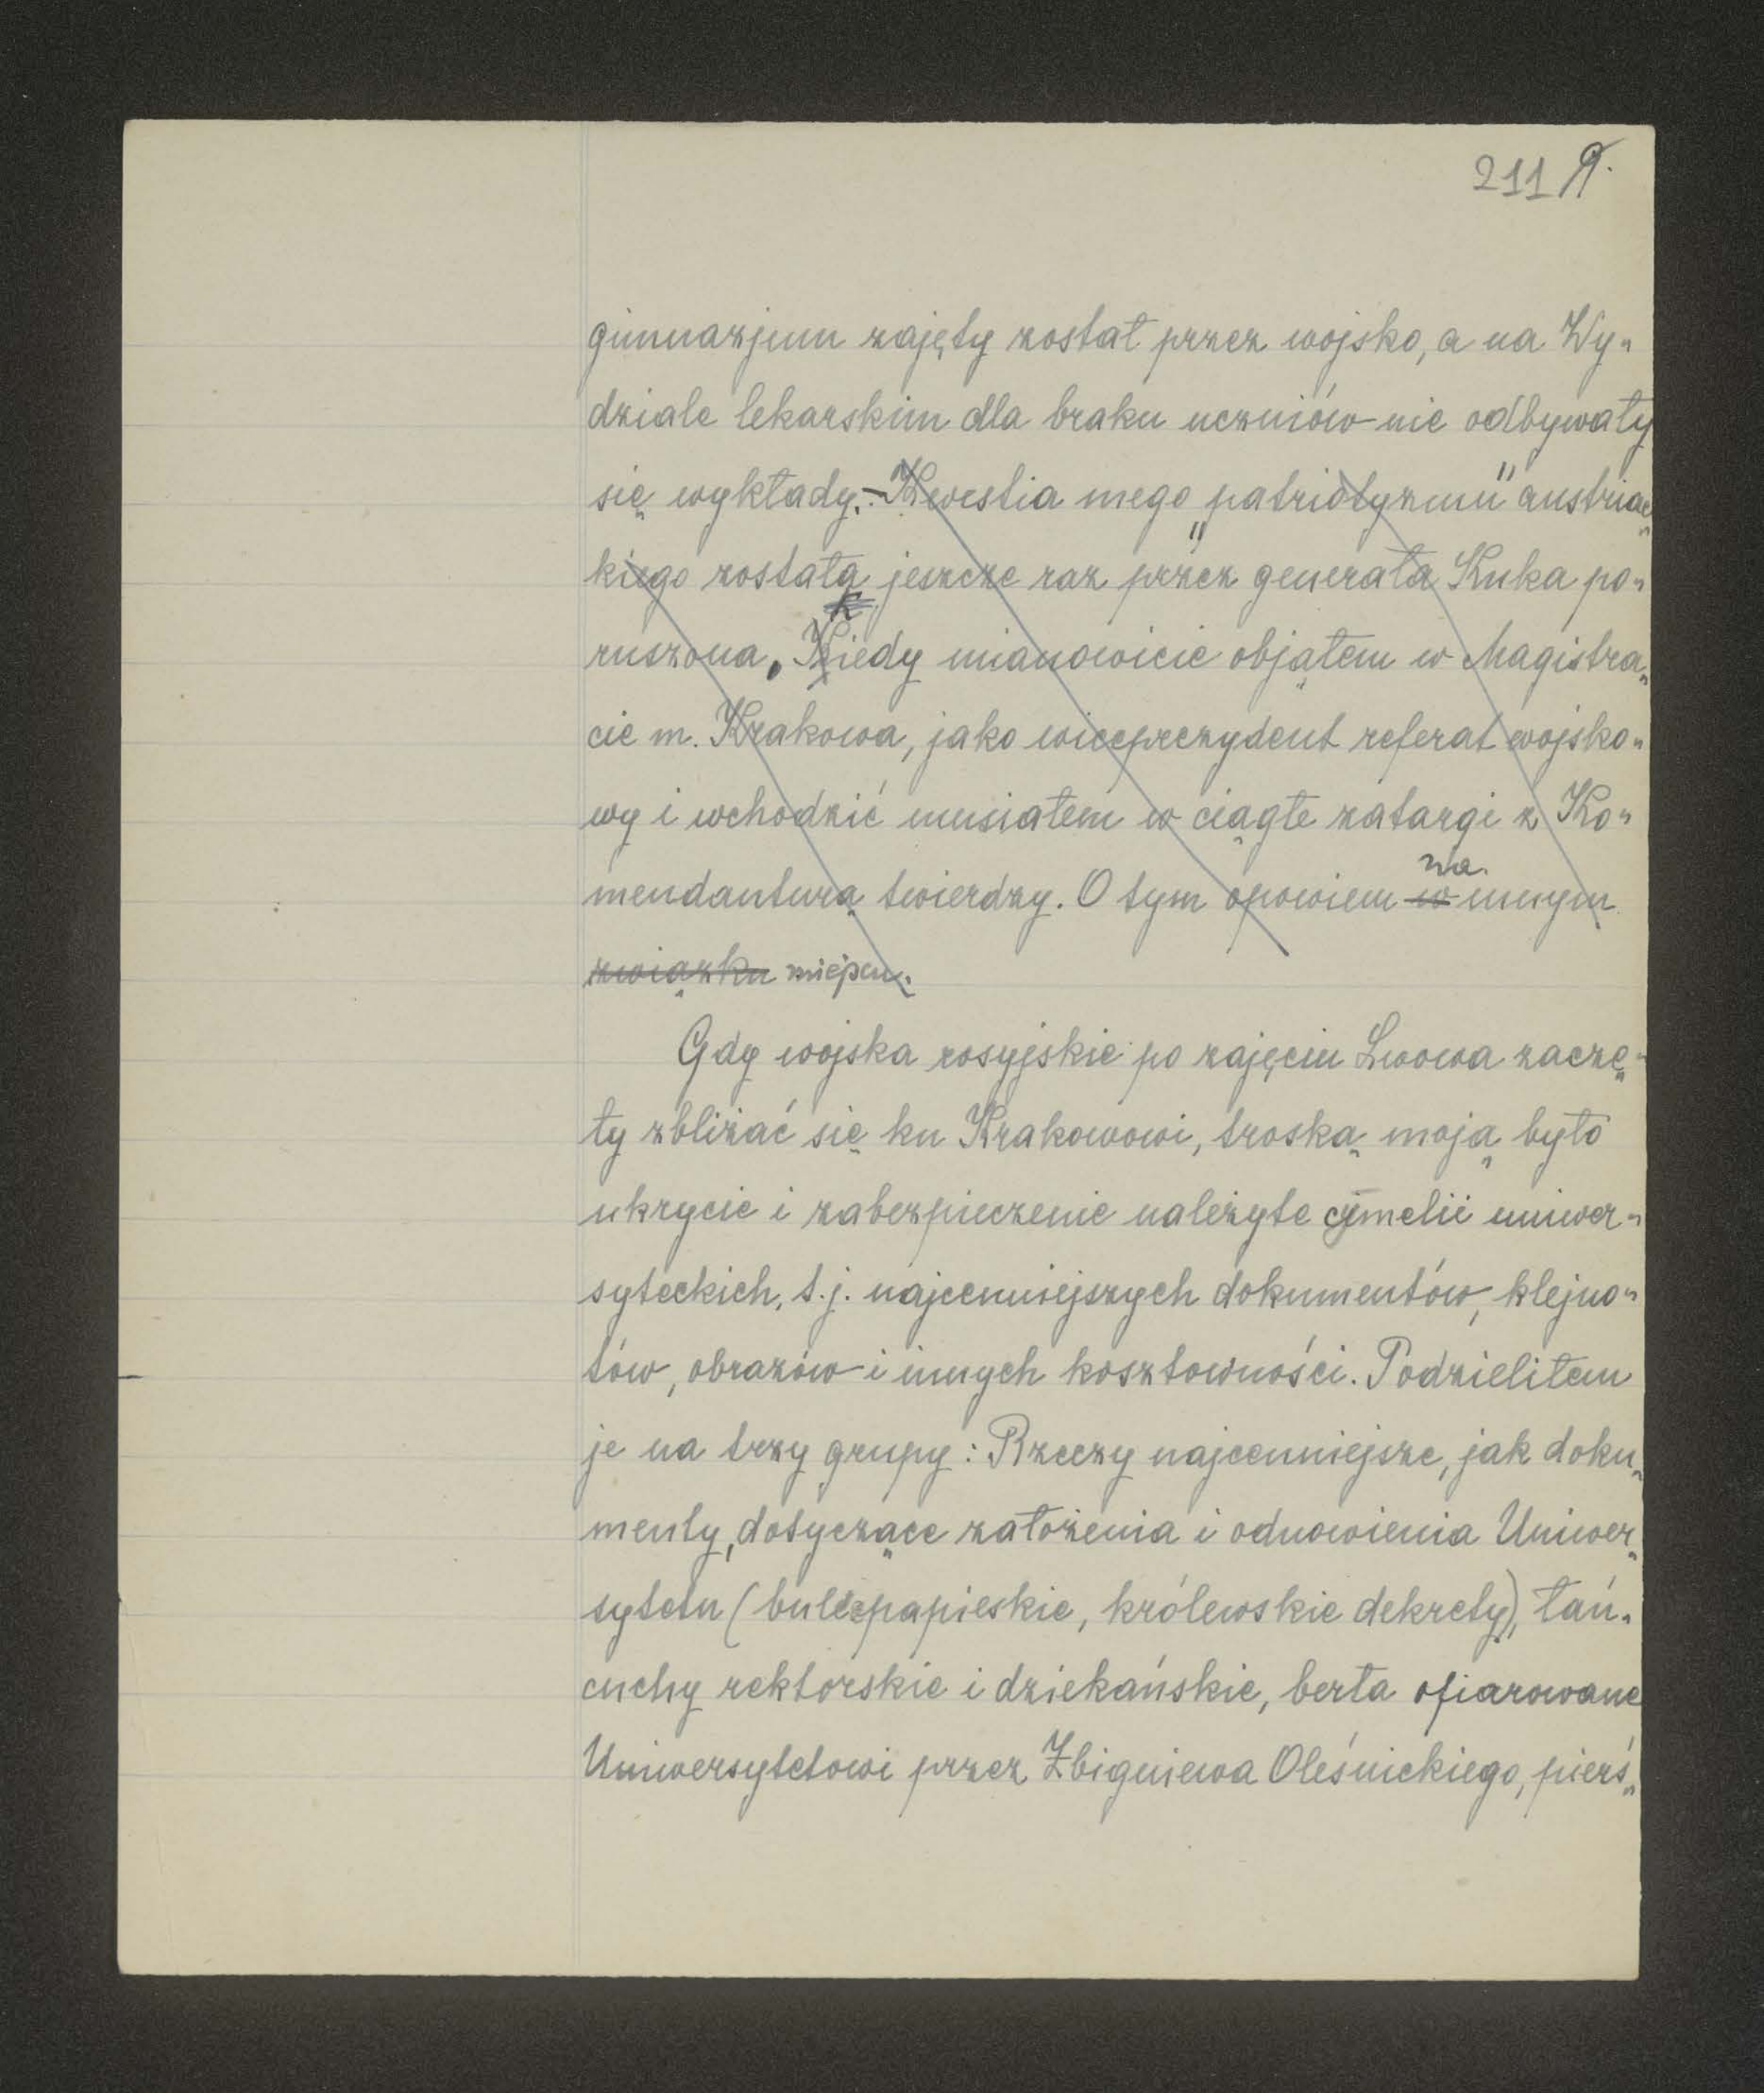 211 9.
gimnazjum zajęty został przez wojsko, a na Wy-
dziale lekarskim dla braku uczniów nie odbywały
się wykłady. - Kwestia mego „patriotyzmu" austriac-
kiego została jeszcze raz przez generała Kuka po-
ruszona. Kiedy mianowicie objąłem w Magistra-
cie m. Krakowa, jako wiceprezydent referat wojsko-
wy i wchodzić musiałem w ciągłe zatargi z Ko-
na
mendanturą twierdzy. O tym opowiem w innym
związku miejscu.
Gdy wojska rosyjskie po zajęciu Lwowa zaczę-
ły zbliżać się ku Krakowowi, troską moją było
ukrycie i zabezpieczenie należyte cymelii uniwer-
syteckich, t.j. najcenniejszych dokumentów, klejno-
tów, obrazów i innych kosztowności. Podzieliłem
je na trzy grupy: Rzeczy najcenniejsze, jak doku-
menty, dotyczące założenia i odnowienia Uniwer-
sytetu (bulle papieskie, królewskie dekrety), łań-
cuchy rektorskie i dziekańskie, berła ofiarowane
Uniwersytetowi przez Zbigniewa Oleśnickiego, pierś-